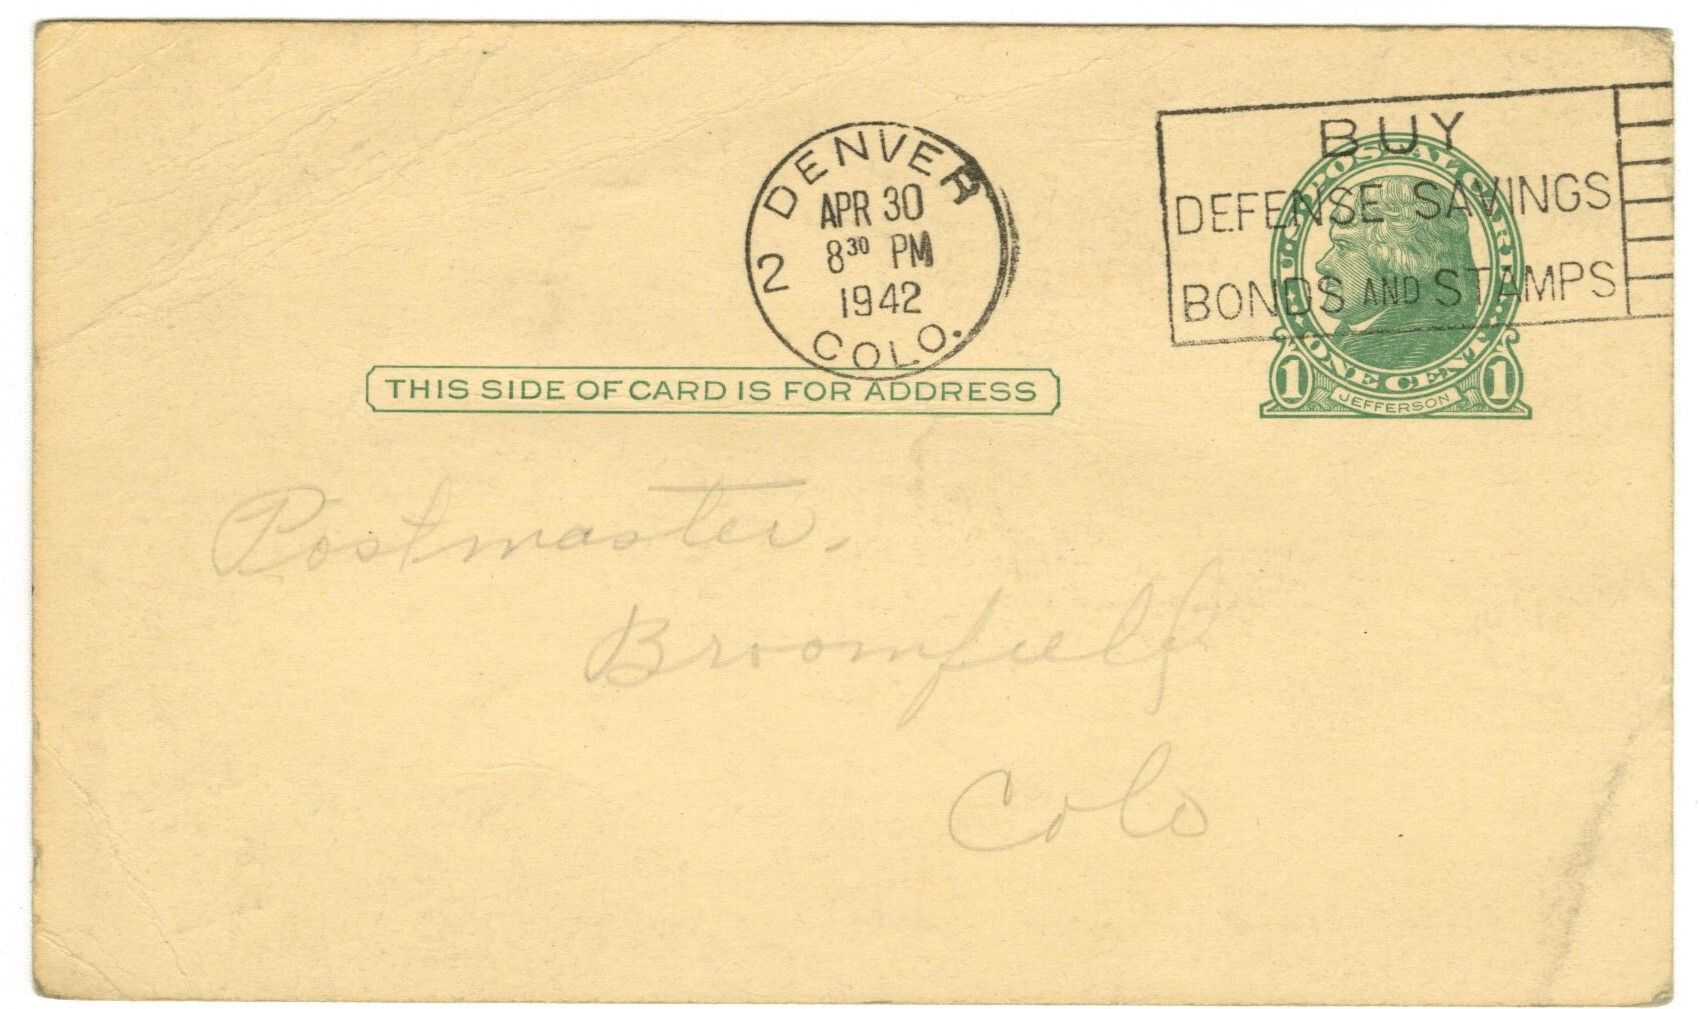 DENVER
APR 30
8³⁰ PM
1942
2
COLO.
BUY
DEFENSE SAVINGS
BONDS AND STAMPS
U.S. POSTAL CARD
ONE CENT
1 JEFFERSON 1
THIS SIDE OF CARD IS FOR ADDRESS
Postmaster,
Broomfield
Colo